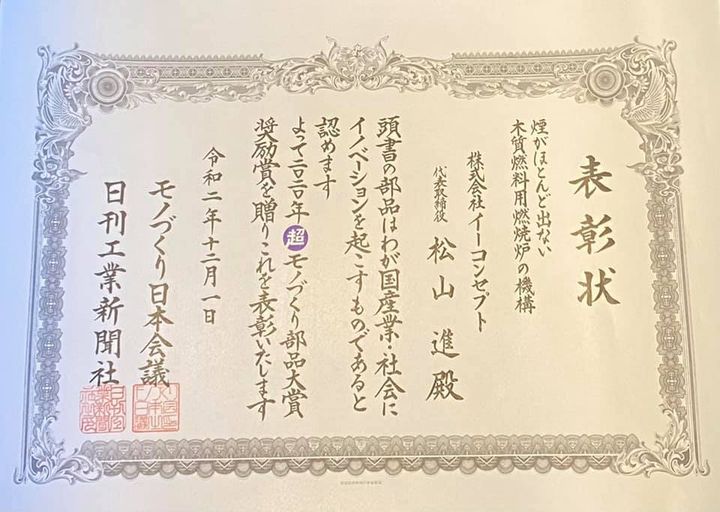 表彰状
煙がほとんど出ない
木質燃料用燃焼炉の機構
株式会社イーコンセプト
代表取締役 松山 進 殿
頭書の部品はわが国産業・社会に
イノベーションを起こすものであると
認めます
よって二〇二〇年超モノづくり部品大賞
奨励賞を贈りこれを表彰いたします
令和二年十二月一日
モノづくり日本会議
日刊工業新聞社